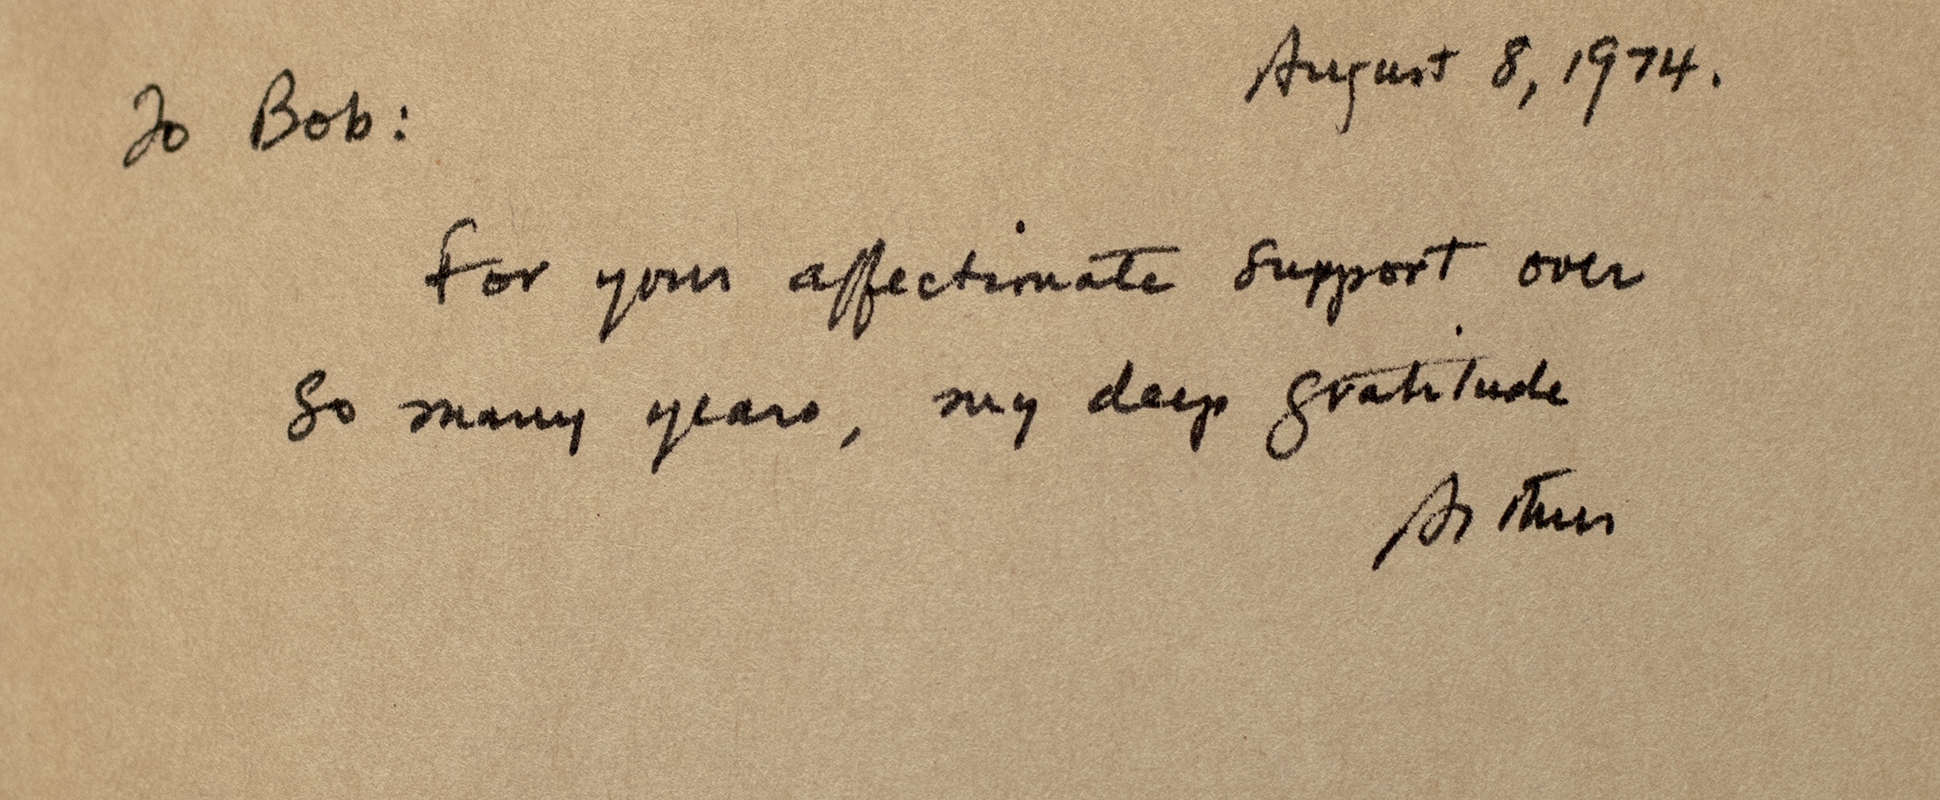 August 8, 1974.
To Bob:
For your affectionate support over
so many years, my deep gratitude
Arthur